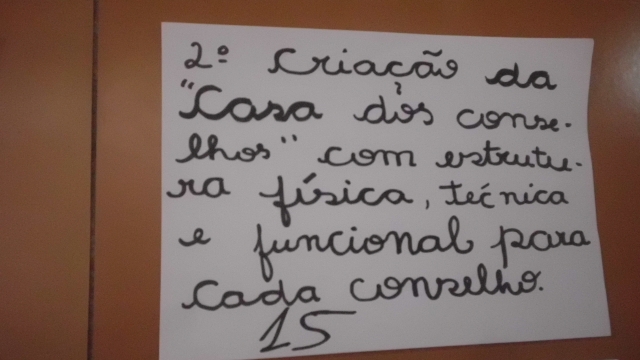 2º Criação da
"Casa dos conse-
lhos" com estrutu-
ra física, técnica
e funcional para
cada conselho.
15